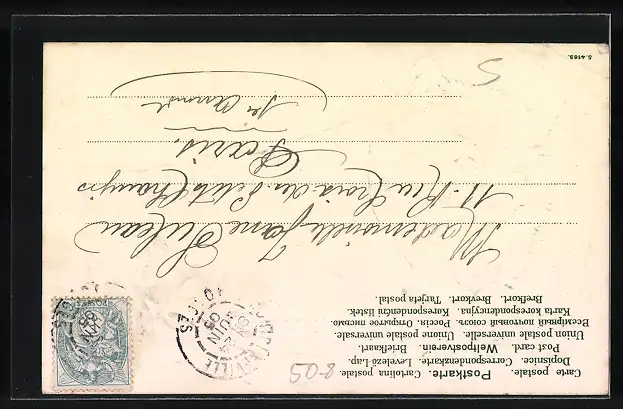 Carte postale. Postkarte. Cartolina postale.
Dopisnice. Correspondenzkarte. Levelező-Lap.
Post card. Weltpostverein. Briefkaart.
Union postale universelle. Unione postale universale.
Всемірный почтовый союзъ. Россія. Открытое письмо.
Karta korespondencyjna. Korespondenční lístek.
Brefkort. Brevkort. Tarjeta postal.
Mademoiselle Jane
11. Rue Croix des Petits Champs
Paris.
S.4169.
8-05